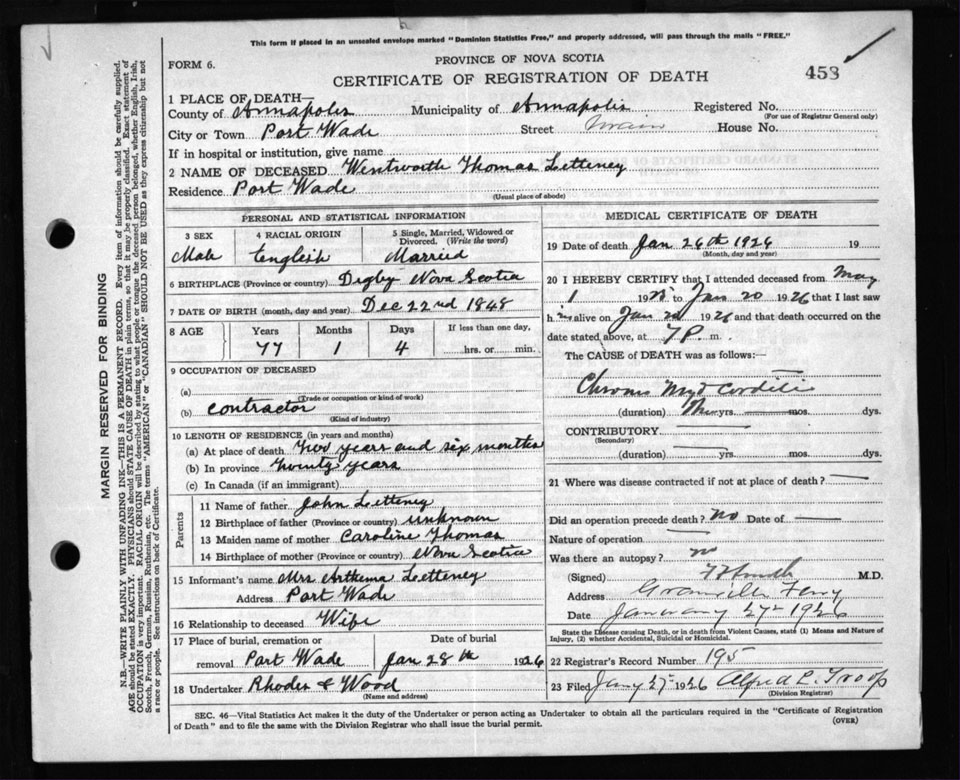 This form if placed in an unsealed envelope marked "Dominion Statistics Free," and properly addressed, will pass through the mails "FREE."
FORM 6.
PROVINCE OF NOVA SCOTIA
CERTIFICATE OF REGISTRATION OF DEATH
458
1 PLACE OF DEATH—
County of Annapolis Municipality of Annapolis Registered No.
(For use of Registrar General only)
City or Town Port Wade Street Main House No.
If in hospital or institution, give name
2 NAME OF DECEASED Wentworth Thomas Letteney
Residence Port Wade
(Usual place of abode)
PERSONAL AND STATISTICAL INFORMATION
3 SEX 4 RACIAL ORIGIN 5 Single, Married, Widowed or Divorced. (Write the word)
Male English Married
6 BIRTHPLACE (Province or country) Digby Nova Scotia
7 DATE OF BIRTH (month, day and year) Dec 22nd 1848
8 AGE Years Months Days If less than one day,
77 1 4 hrs. or min.
9 OCCUPATION OF DECEASED
(a)
(Trade or occupation or kind of work)
(b) contractor
(Kind of industry)
10 LENGTH OF RESIDENCE (in years and months)
(a) At place of death two years and six months
(b) In province twenty years
(c) In Canada (if an immigrant)
Parents
11 Name of father John Letteney
12 Birthplace of father (Province or country) unknown
13 Maiden name of mother Caroline Thomas
14 Birthplace of mother (Province or country) Nova Scotia
15 Informant's name Mrs Letteney
Address Port Wade
16 Relationship to deceased Wife
17 Place of burial, cremation or Date of burial
removal Port Wade Jan 28th 1926
18 Undertaker Rhodes & Wood
(Name and address)
MEDICAL CERTIFICATE OF DEATH
19 Date of death Jan 26th 1926 19
(Month, day and year)
20 I HEREBY CERTIFY that I attended deceased from May
1 1925 to Jan 20 1926 that I last saw
h im alive on Jan 20 1926 and that death occurred on
date stated above, at 7 P. m.
The CAUSE of DEATH was as follows:—
Chronic Myo Corditis
(duration) yrs. mos. dys.
CONTRIBUTORY
(Secondary)
(duration) yrs. mos. dys.
21 Where was disease contracted if not at place of death?
Did an operation precede death? No Date of
Nature of operation
Was there an autopsy? no
(Signed) M.D.
Address Granville Ferry
Date January 27 1926
State the Disease causing Death, or in death from Violent Causes, state (1) Means and Nature of
Injury, (2) whether Accidental, Suicidal or Homicidal.
22 Registrar's Record Number 195
23 Filed Jany 27 1926 Alfred L. Troop
(Division Registrar)
SEC. 46—Vital Statistics Act makes it the duty of the Undertaker or person acting as Undertaker to obtain all the particulars required in the "Certificate of Registration
of Death" and to file the same with the Division Registrar who shall issue the burial permit.
(OVER)
MARGIN RESERVED FOR BINDING
N.B.—WRITE PLAINLY WITH UNFADING INK—THIS IS A PERMANENT RECORD. Every item of information should be carefully supplied.
AGE should be stated EXACTLY. PHYSICIANS should STATE CAUSE OF DEATH in plain terms, so that it may be properly classified. Exact statement of
OCCUPATION is very important. RACIAL ORIGIN will be described by stating to what people or tongue the deceased person belonged, whether English, Irish,
Scotch, French, German, Russian, Ruthenian, etc. The terms "AMERICAN" or "CANADIAN" SHOULD NOT BE USED as they express citizenship but not
a race or people. See instructions on back of Certificate.